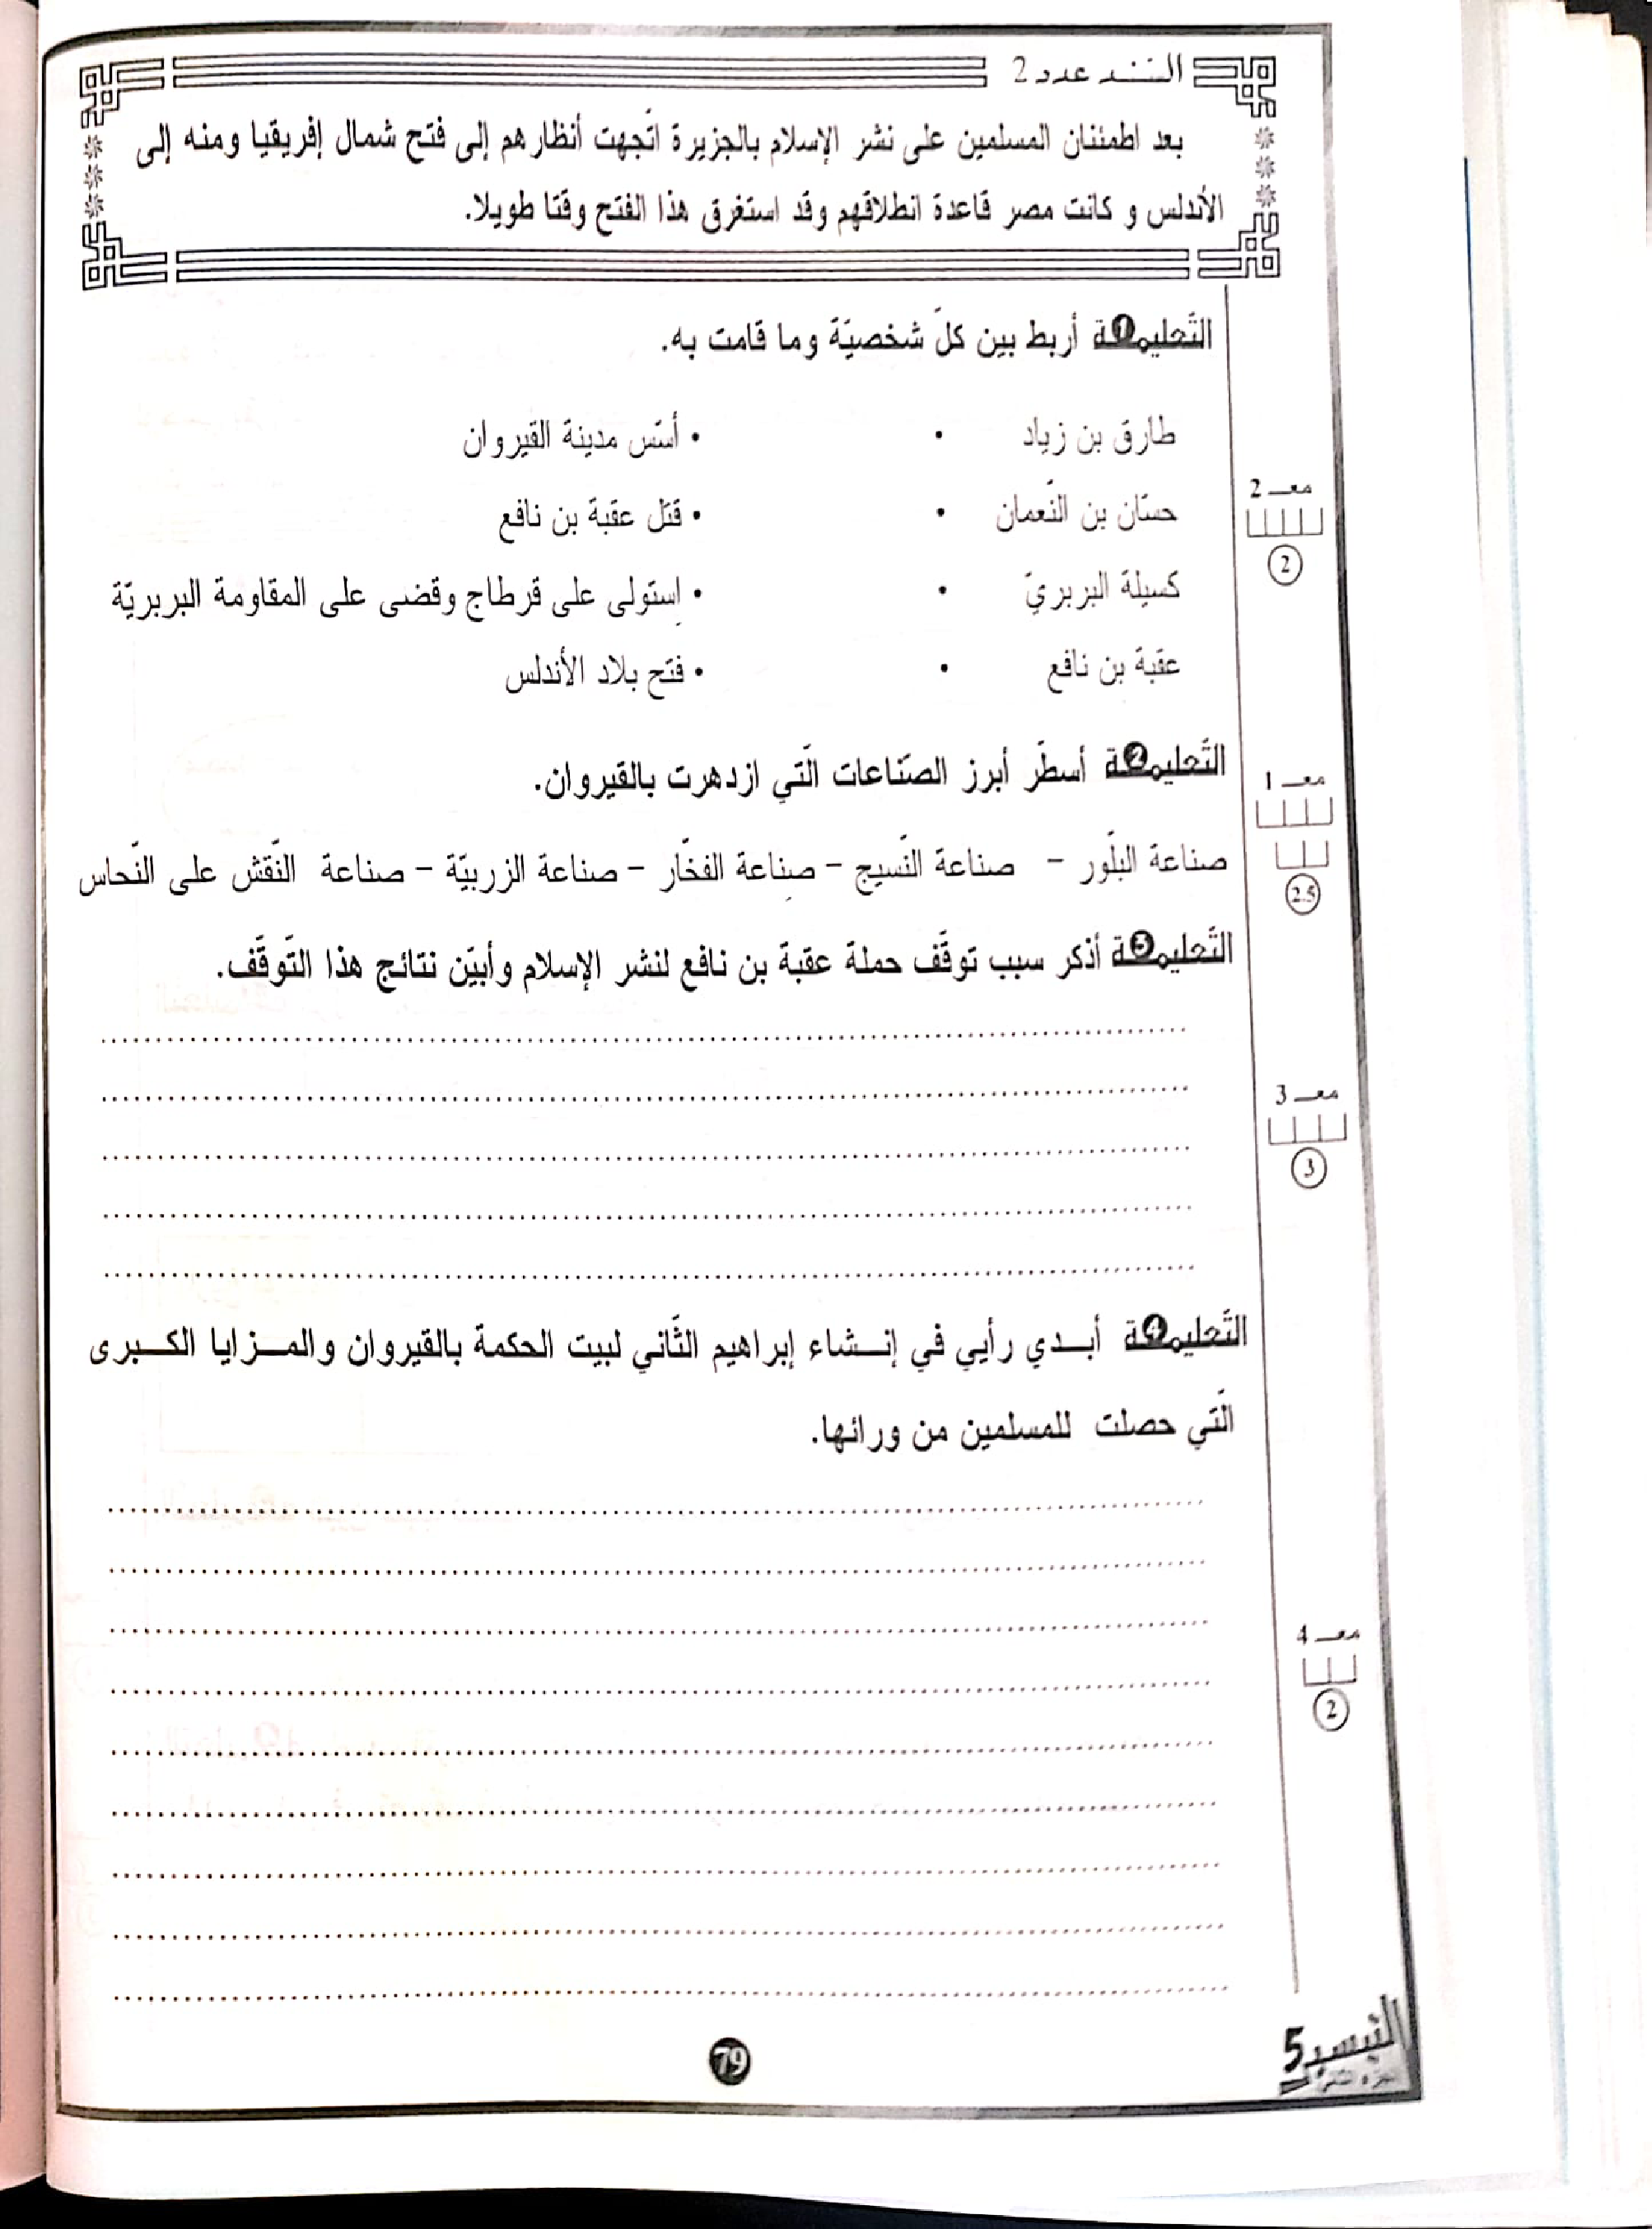 السّند عدد 2
بعد اطمئنان المسلمين على نشر الإسلام بالجزيرة اتّجهت أنظارهم إلى فتح شمال إفريقيا ومنه إلى
الأندلس و كانت مصر قاعدة انطلاقهم وقد استغرق هذا الفتح وقتا طويلا.
التّعليمة 1 أربط بين كلّ شخصيّة وما قامت به.
طارق بن زياد • • أسّس مدينة القيروان
حسّان بن النّعمان • • قتل عقبة بن نافع
كسيلة البربريّ • • اِستولى على قرطاج وقضى على المقاومة البربريّة
عقبة بن نافع • • فتح بلاد الأندلس
معـ 2
2
التّعليمة 2 أسطّر أبرز الصّناعات الّتي ازدهرت بالقيروان.
معـ 1
صناعة البلّور – صناعة النّسيج – صِناعة الفخّار – صناعة الزربيّة – صناعة النّقش على النّحاس
2.5
التّعليمة 3 أذكر سبب توقّف حملة عقبة بن نافع لنشر الإسلام وأبيّن نتائج هذا التّوقّف.
معـ 3
3
التّعليمة 4 أبـدي رأيي في إنـشاء إبراهيم الثّاني لبيت الحكمة بالقيروان والمـزايا الكـبرى
الّتي حصلت للمسلمين من ورائها.
معـ 4
2
79
التيسير 5
الجزء الثاني